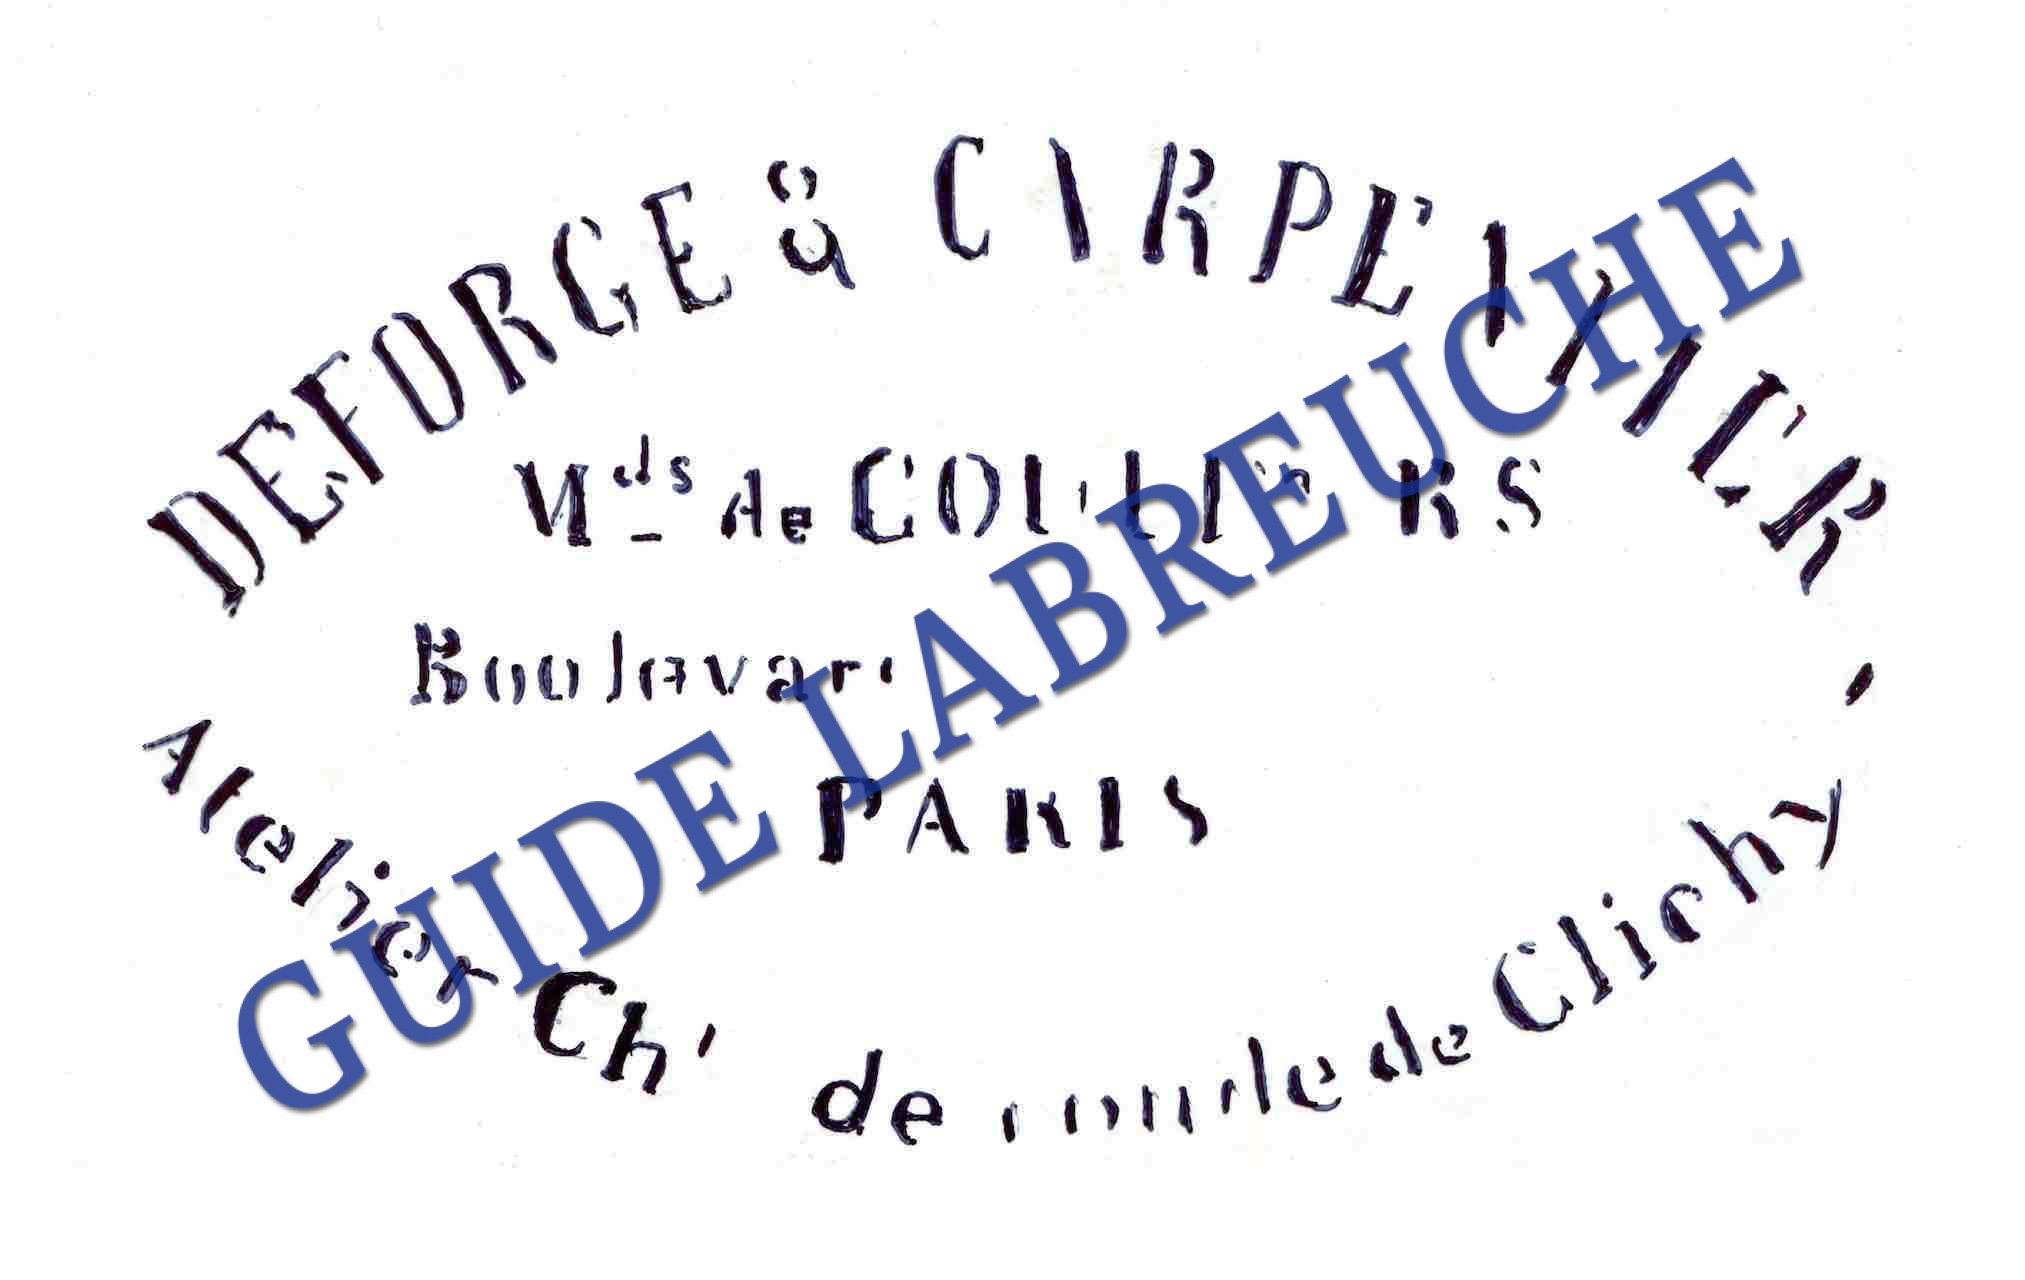 DEFORGE & CARPENTIER
Mds de COULEURS
Boulevard
PARIS
Atelier Ch. de ronde de Clichy.
GUIDE LABREUCHE